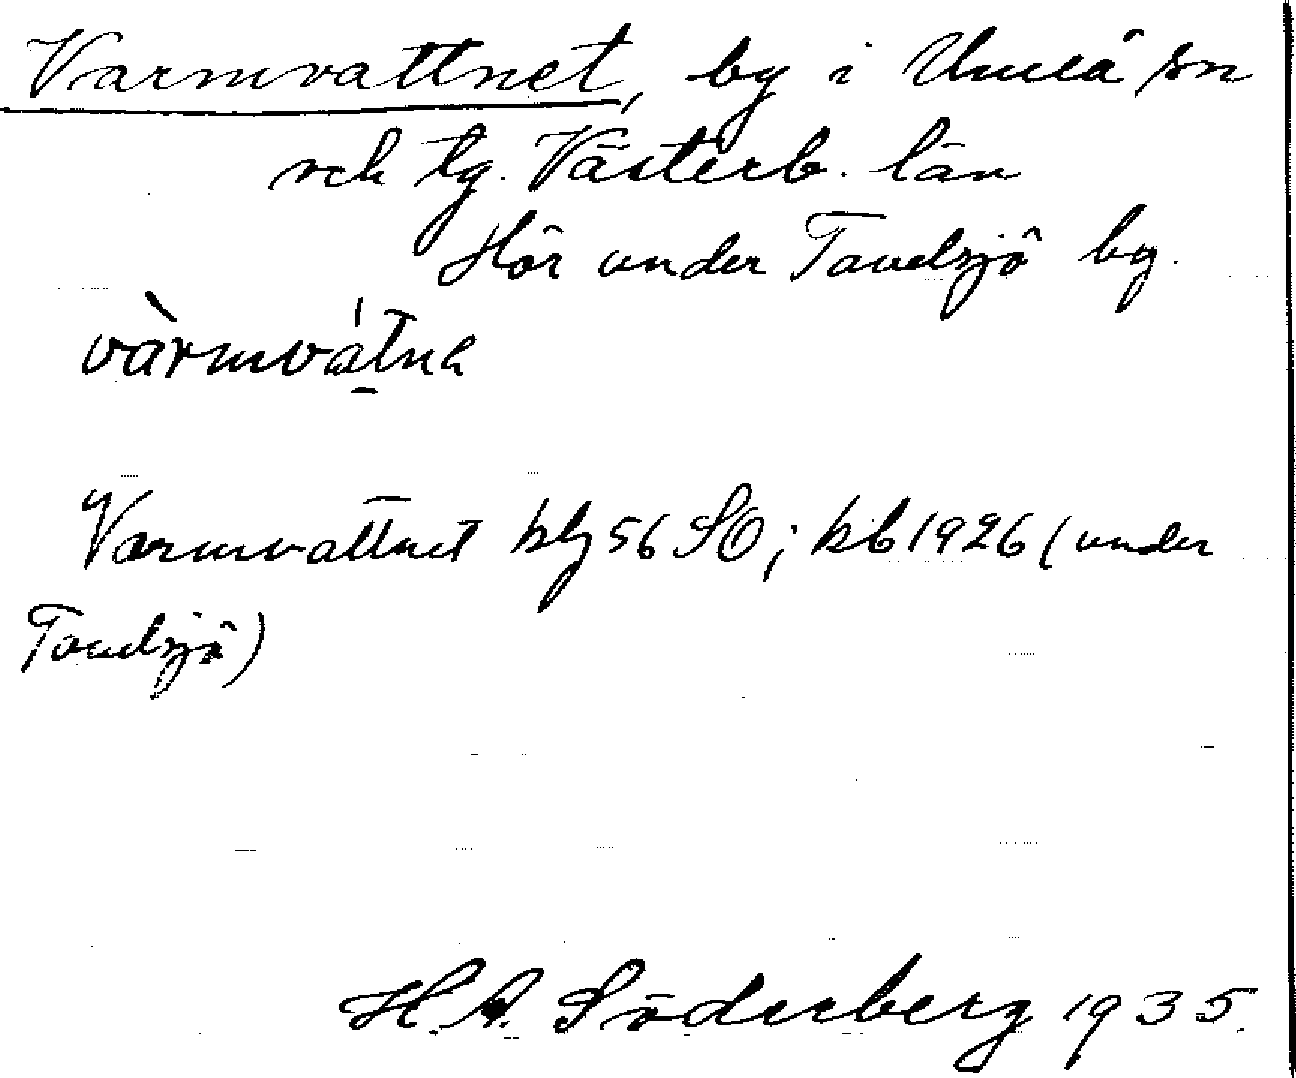 Varmvattnet, by i Umeå sn
och tg. Västerb. län
Hör under Tavelsjö by.
vàrmvátnɐ
Varmvattnet kbl 56 SO; kb 1926 (under
Tavelsjö)
H. A. Söderberg 1935.